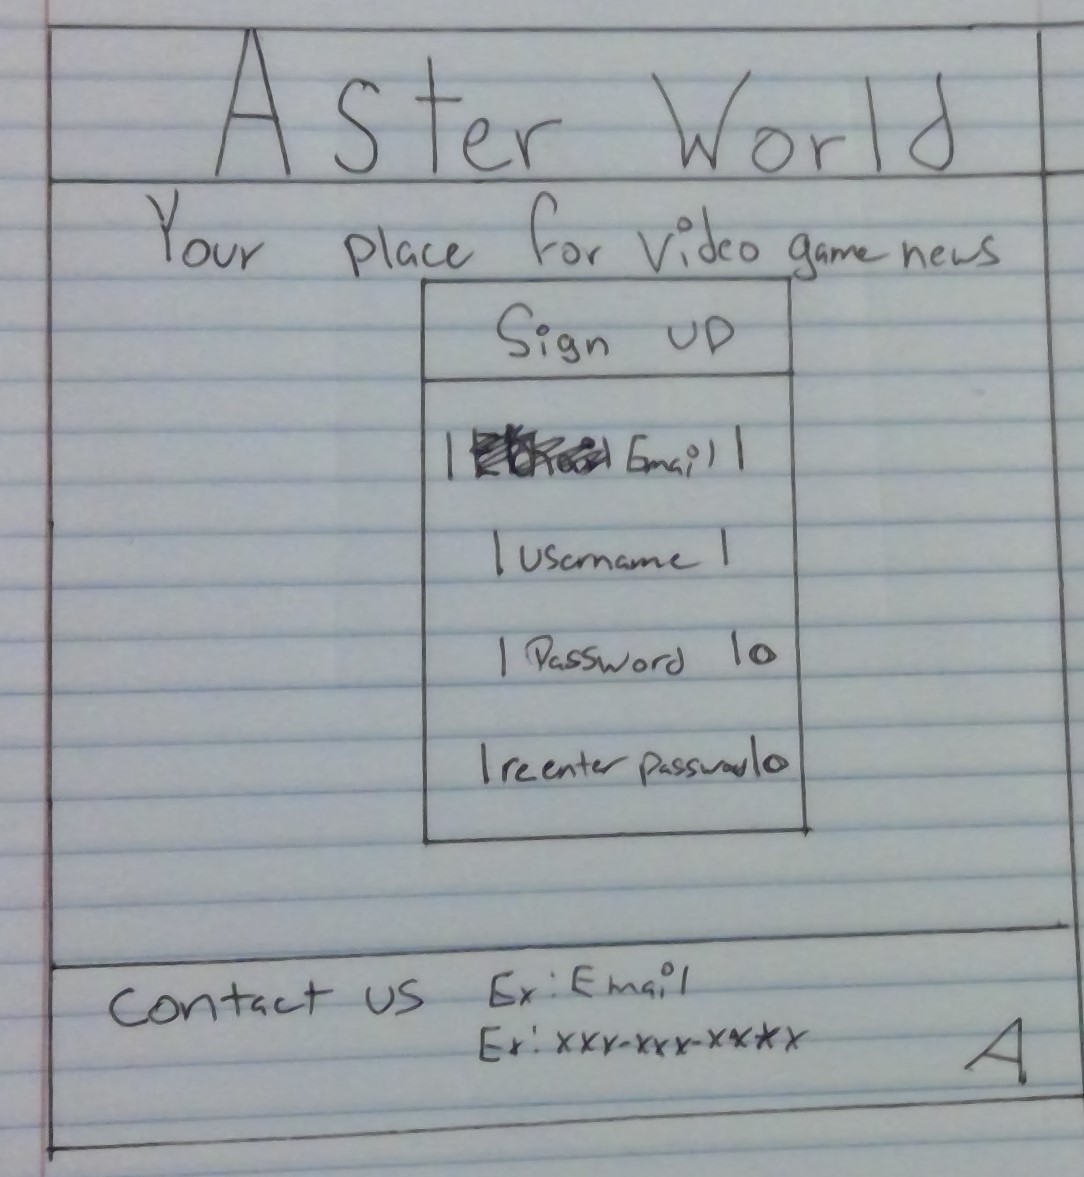 Aster World
Your place for video game news
Sign UP
Email
username
Password
reenter password
Contact us Ex: Email
Ex: xxx-xxx-xxxx
A